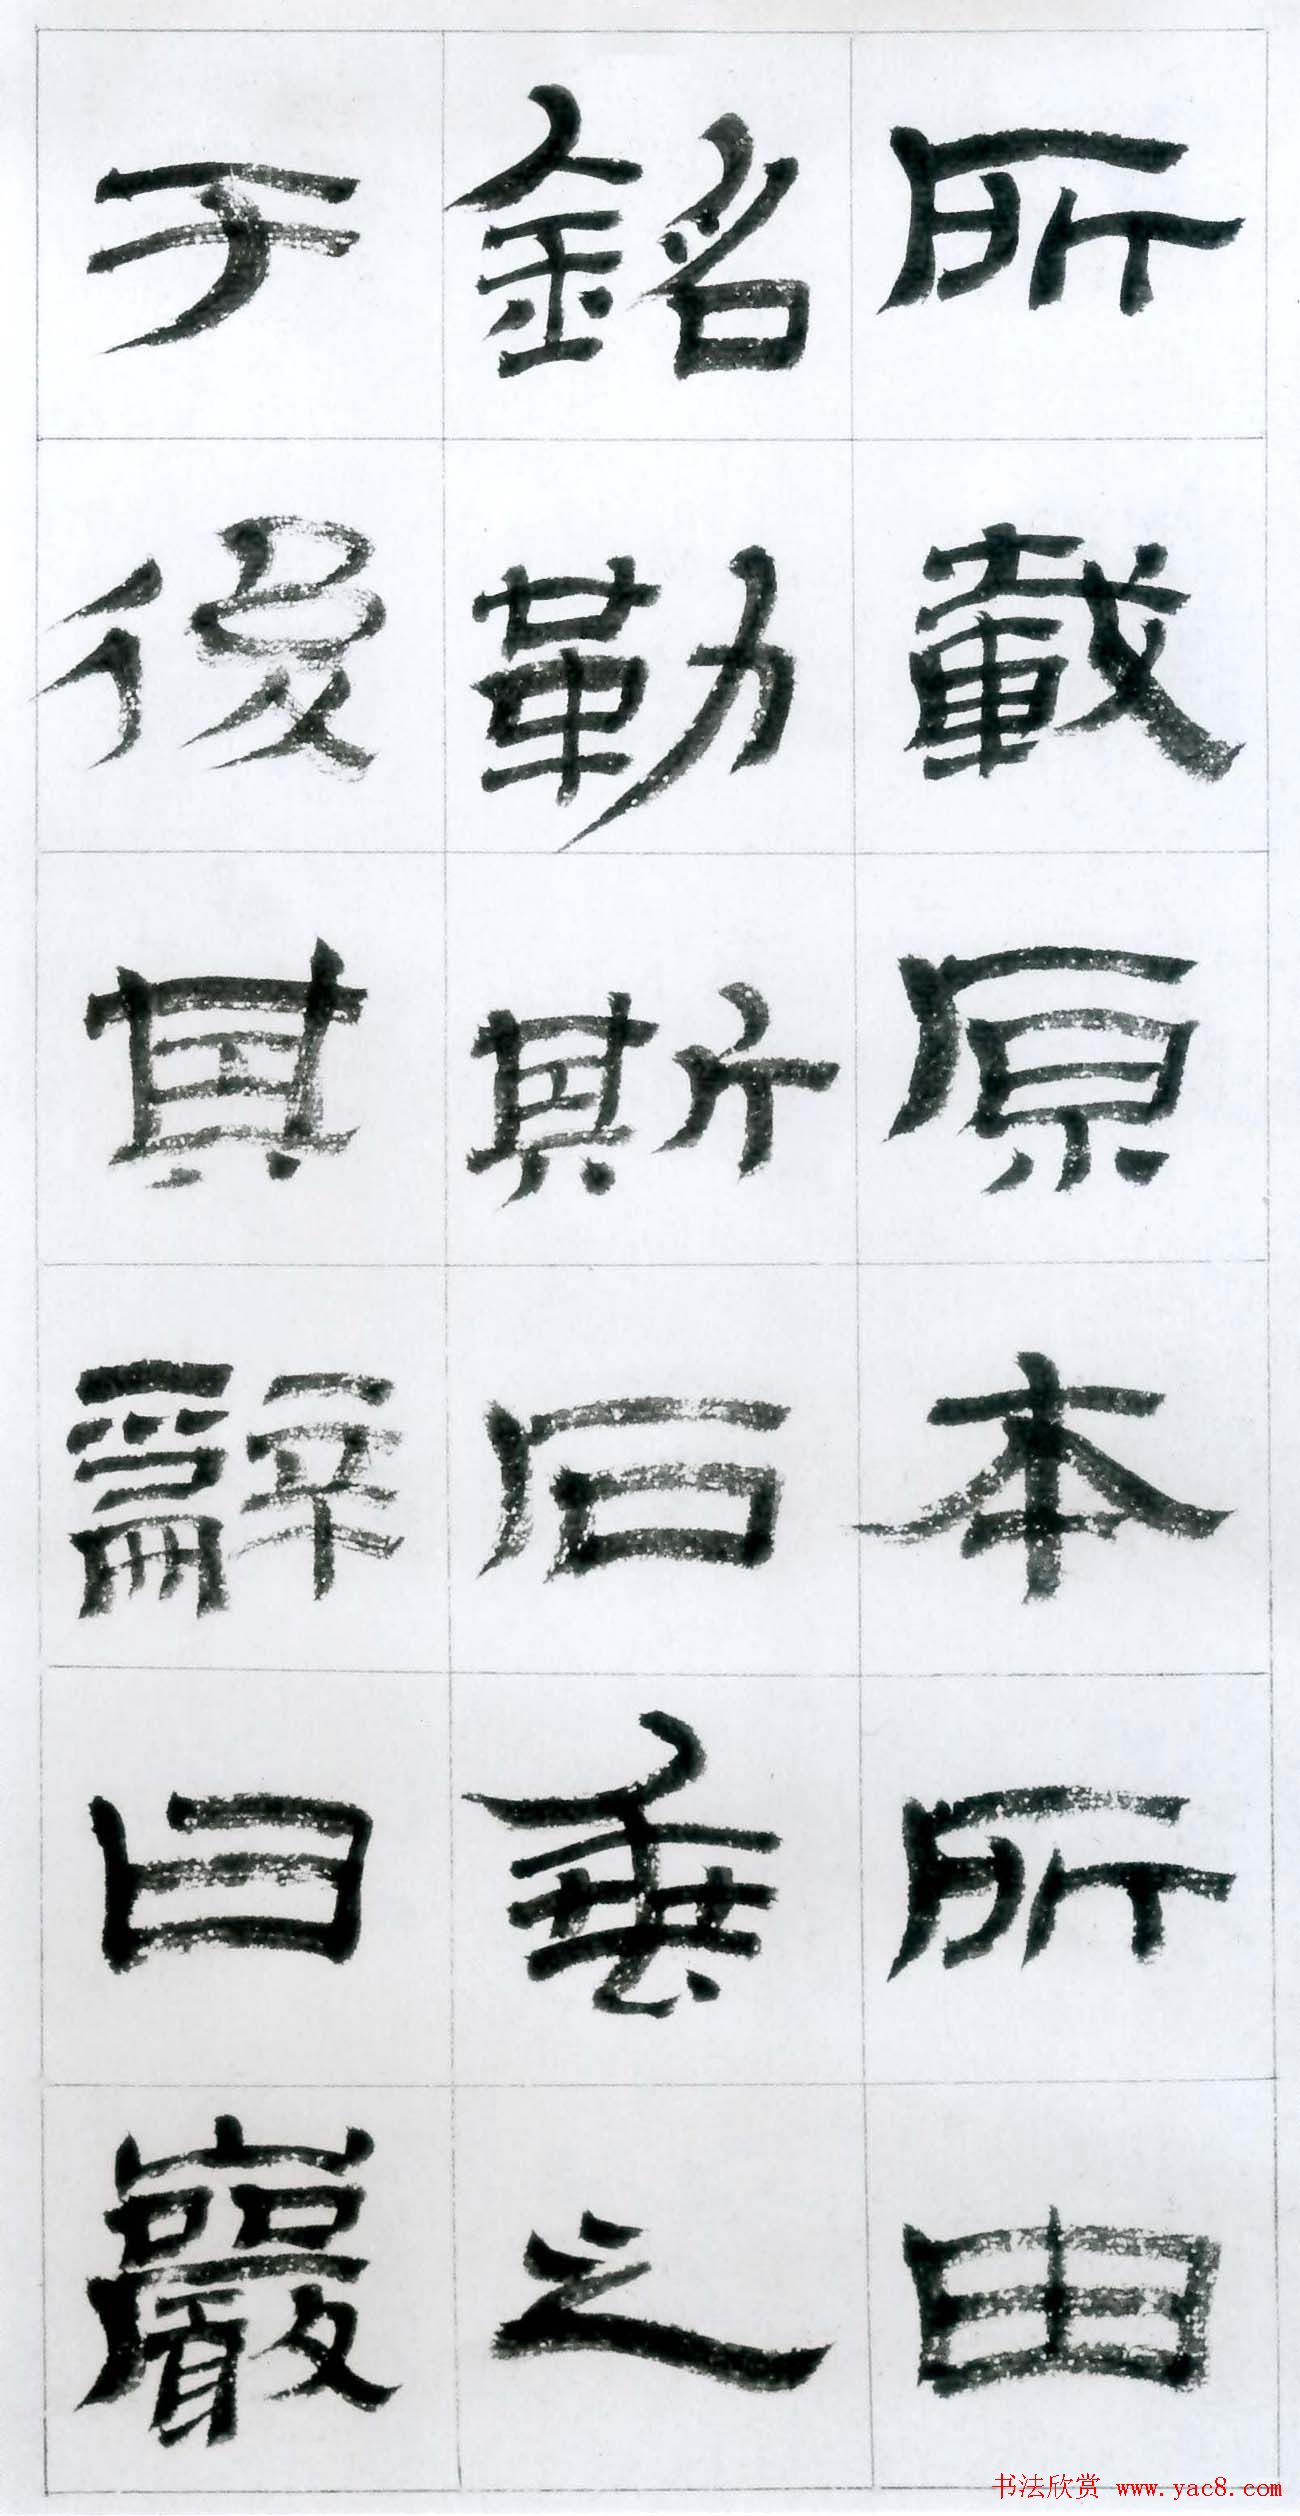 所載原本所由
銘勒斯石垂之
于後其辭曰巖
书法欣赏 www.yac8.com